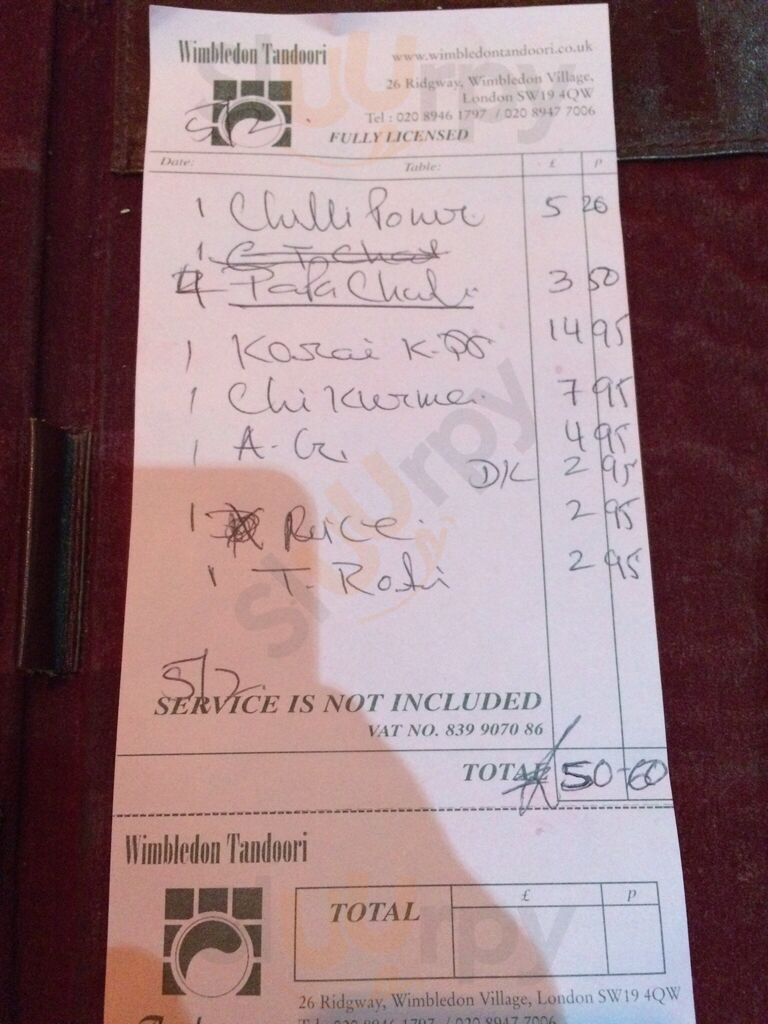 Wimbledon Tandoori
www.wimbledontandoori.co.uk
26 Ridgway, Wimbledon Village,
London SW19 4QW
Tel : 020 8946 1797 / 020 8947 7006
FULLY LICENSED
5/2
Date: Table: £ p
1 Chilli Paneer 5 20
1 C T Chat
4 Papa Chal 3 50
1 Karai K. 14 95
1 Chi Kurma 7 95
1 A. G. 4 95
DK 2 95
1 Rice. 2 95
1 T. Roti 2 95
5/2
SERVICE IS NOT INCLUDED
VAT NO. 839 9070 86
TOTAL 50-60
Wimbledon Tandoori
TOTAL £ p
26 Ridgway, Wimbledon Village, London SW19 4QW
Tel : 020 8946 1797 / 020 8947 7006
sluurpy
sluurpy
sluurpy